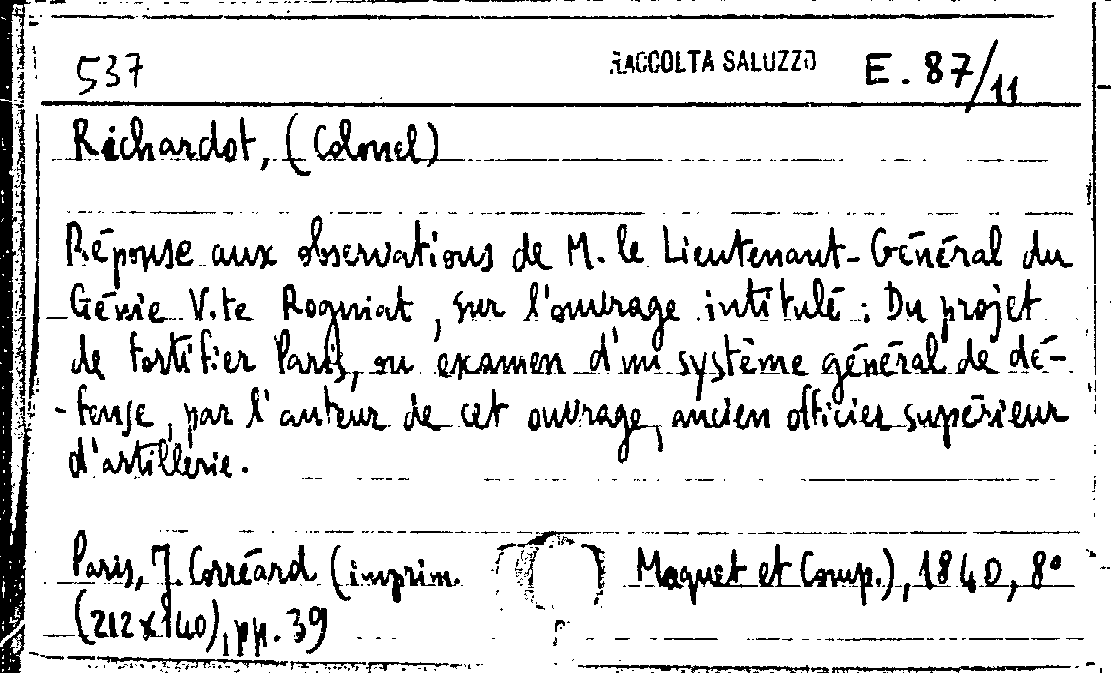 537 RACCOLTA SALUZZO E. 87/11
Richardot, (Colonel)
Réponse aux observations de M. le Lieutenant-Général du
Génie V.te Rogniat, sur l'ouvrage intitulé : Du projet
de fortifier Paris, ou examen d'un système général de dé-
-fense, par l'auteur de cet ouvrage, ancien officier supérieur
d'artillerie.
Paris, J. Corréard (imprim. Maquet et Comp.), 1840, 8°
(212x140), pp. 39